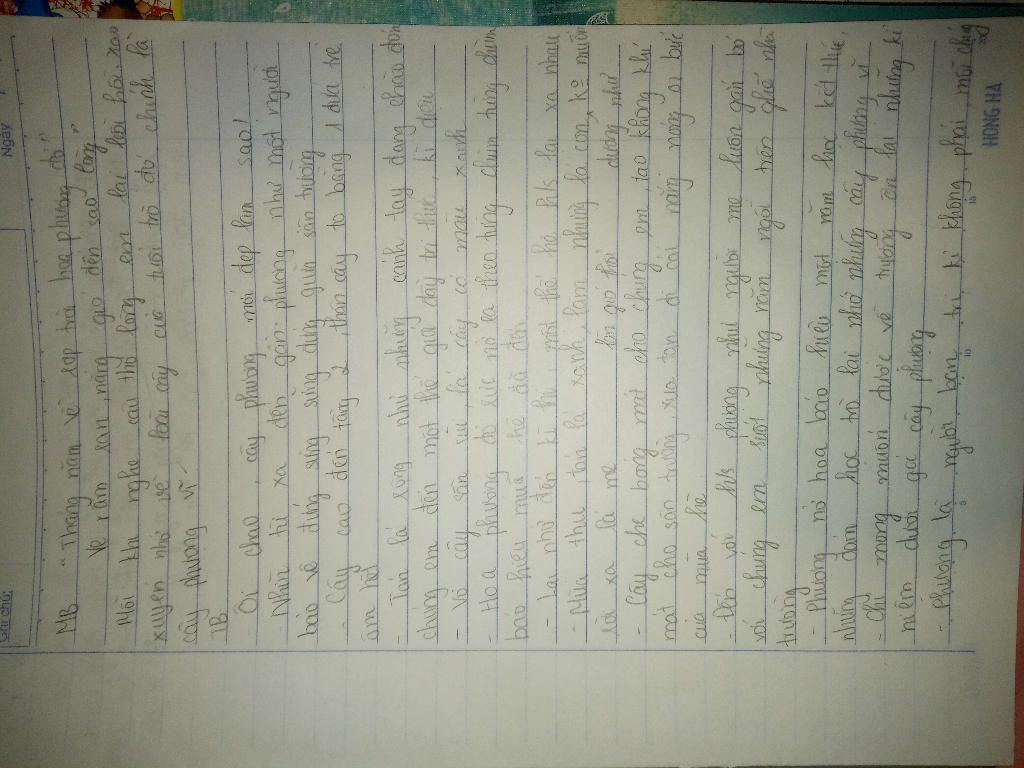 Ngày
Ghi chú:
MB: "Tháng năm về rợp trời hoa phượng đỏ
Ve râm ran nắng gió đến sao lòng"
Mỗi khi nghe câu thơ lòng em lại bồi hồi xao
xuyến nhớ về loài cây của tuổi trò đó chính là
cây phượng vĩ
TB:
- Ôi chao, cây phượng mới đẹp làm sao!
- Nhìn từ xa đến gần: phượng như một người
bảo vệ đứng sừng sững đứng giữa sân trường
- Cây cao đến tầng 2, thân cây to bằng 1 đứa trẻ
ôm hết
- Tán lá rộng như những cánh tay đang chào đón
chúng em đến một thế giới đầy tri thức, kì diệu
- Vỏ cây sần sùi, lá cây có màu xanh
- Hoa phượng đỏ rực nở ra theo từng chùm từng chùm
báo hiệu mùa hè đã đến
- Lại nhớ đến kì thi, một thế hệ hs lại xa nhau
- Mùa thu, tán lá xanh, lắm những lá con, ko muốn
rời xa lá mẹ lòn gió thổi dường như
- Cây che bóng mát cho chúng em, tạo không khí
mát cho sân trường, xua tan đi cái nóng nung oi bức
của mùa hè
- Đến với hs phượng như người mẹ luôn gắn bó
với chúng em suốt những năm ngồi trên ghế nhà
trường
- Phượng nở hoa báo hiệu một năm học kết thúc,
những đám học trò lại nhớ những cây phượng vĩ
- Chỉ mong muốn được về trường ôn lại những kỉ
niệm dưới gốc cây phượng
- Phượng là người bạn tri kỉ không phải mỗi chúng
HONG HA